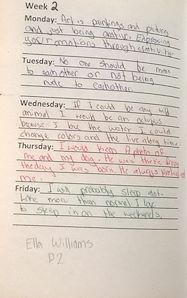 Week 2
Monday: Art is paintings and coloring
and just being creative. Expressing
your emotions through creativity.
Tuesday: No one should be mean
to eachother or not being
rude to eachother.
Wednesday: If I could be any wild
animal I would be an octopus
because I like the water I could
change colors and the live along time.
Thursday: I would a photo of
me and my dog. He was there
the day I was born. He always
me.
Friday: I will probably sleep a lot
like more than normal I like
to sleep in on the weekends.
Ella Williams
P2